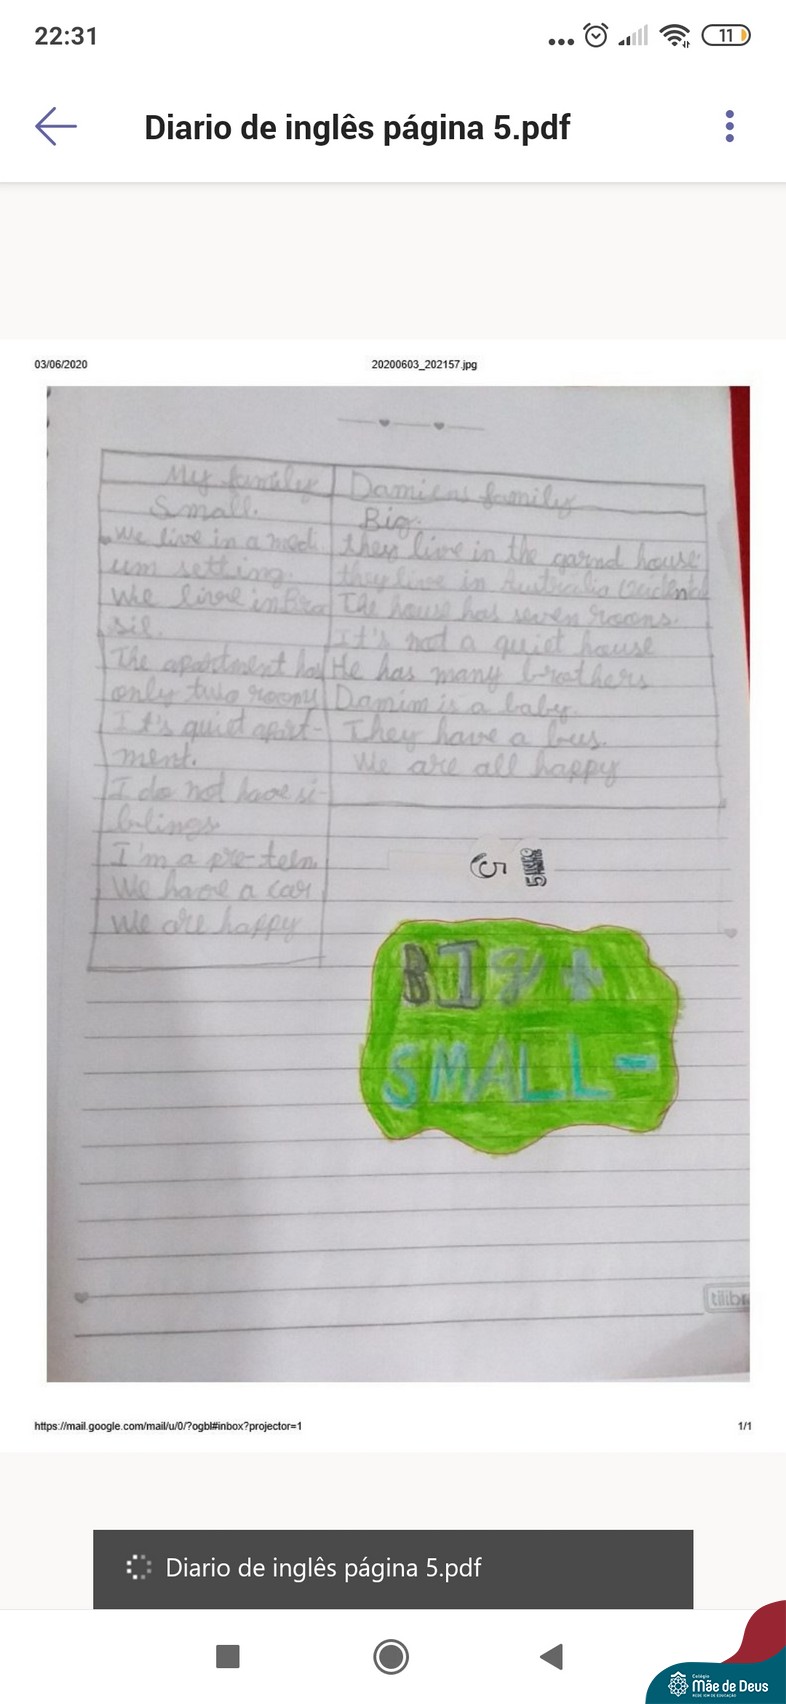 22:31
11
Diario de inglês página 5.pdf
03/06/2020
20200603_202157.jpg
My family
Small.
We live in a medi
um setting.
We live in Bra
sil.
The apartment has
only two rooms
It's quiet apart-
ment.
I do not have si-
blings
I'm a pre-teen
We have a car
We are happy
Damiens family
Big.
they live in the garnd house
they live in Australia Ocidental
The house has seven rooms.
It's not a quiet house
He has many brothers
Damim is a baby.
They have a bus.
We are all happy
5
BIg +
SMALL -
tilibr
https://mail.google.com/mail/u/0/?ogbl#inbox?projector=1
1/1
Diario de inglês página 5.pdf
Colégio
Mãe de Deus